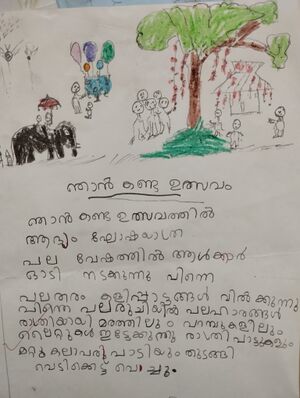 ഞാൻ കണ്ട ഉത്സവം
ഞാൻ കണ്ട ഉത്സവത്തിൽ
ആദ്യം ഘോഷയാത്ര
പല വേഷത്തിൽ ആൾക്കാർ
ഓടി നടക്കുന്നു പിന്നെ
പലതരം കളിപ്പാട്ടങ്ങൾ വിൽക്കുന്നു
പിന്നെ പലരുചിയിൽ പലഹാരങ്ങൾ
രാത്രിയായി മരത്തിലും പറമ്പുകളിലും
ലൈറ്റുകൾ ഇട്ടേക്കുന്നു രാത്രി പാട്ടുകളും
മറ്റു കലാപരിപാടിയും തുടങ്ങി
വെടിക്കെട്ട് വെച്ചും